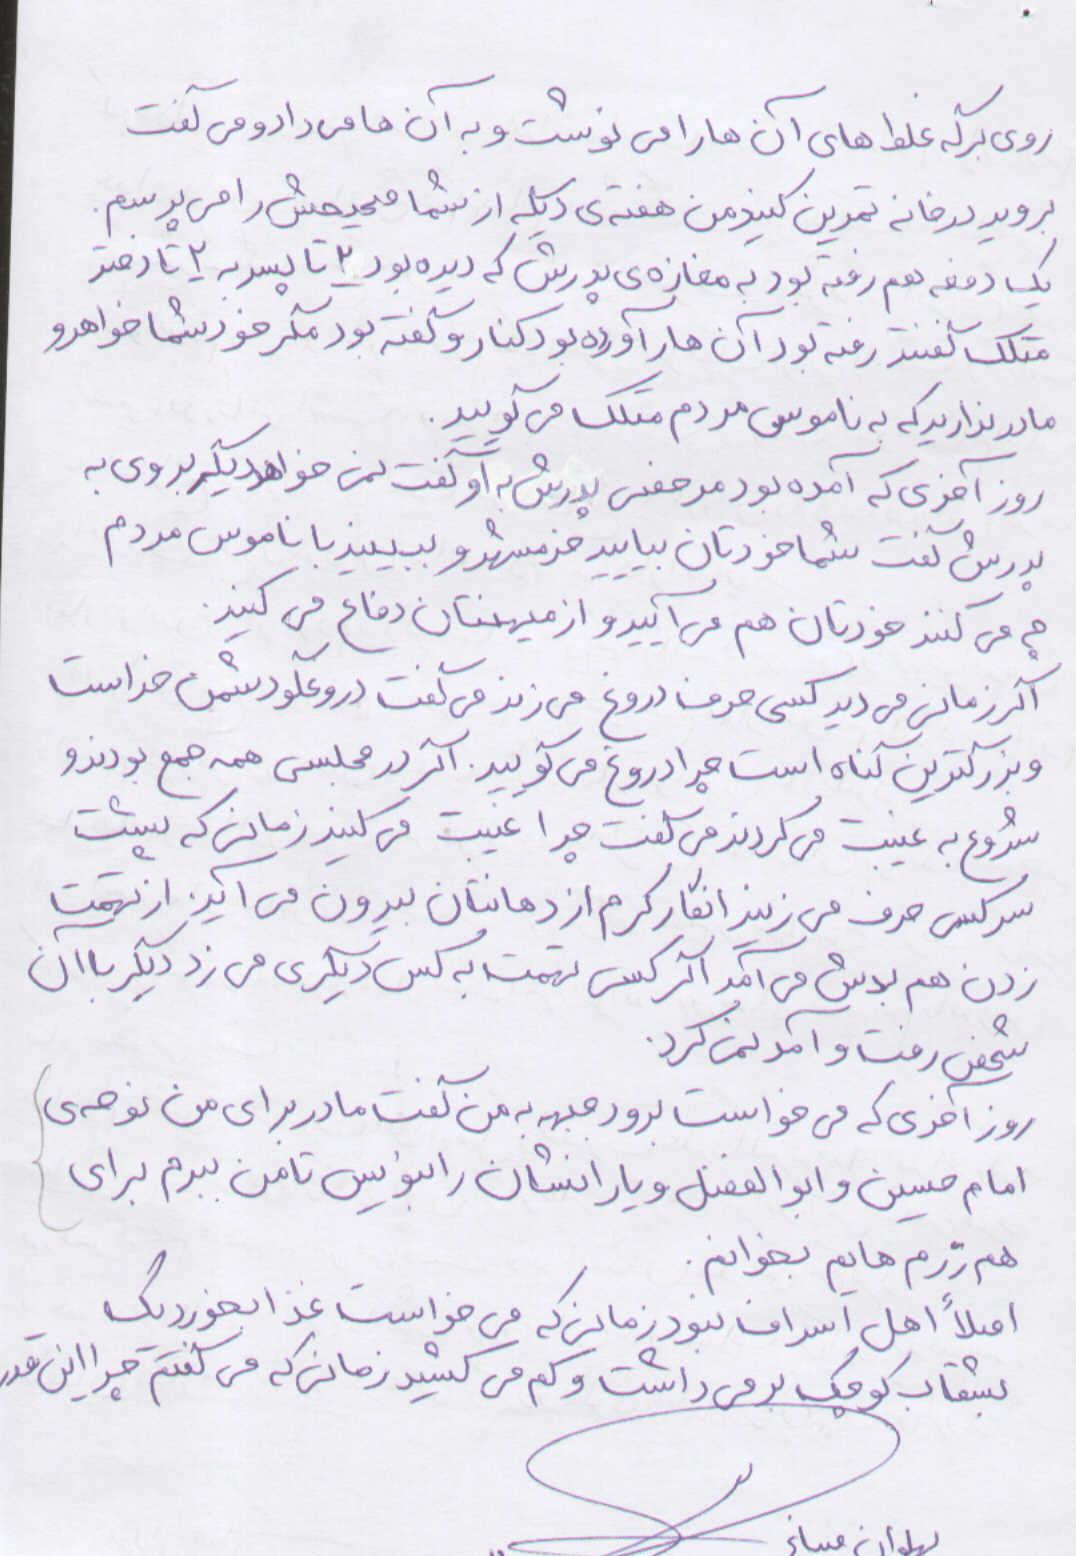 روی برگه غلط های آن ها را می نوشت و به آن ها می داد و می گفت
بروید در خانه تمرین کنید من هفته ی دیگه از شما صحیحش را می پرسم.
یک دفعه هم رفته بود به مغازه ی پدرش که دیده بود ۲ تا پسر به ۲ تا دختر
متلک گفتند رفته بود آن ها را آورده بود کنار و گفته بود مگر خود شما خواهر و
مادر ندارید که به ناموس مردم متلک می گویید.
روز آخری که آمده بود مرخصی پدرش به او گفت نمی خواهد دیگر بروی به
پدرش گفت شما خودتان بیایید خرمشهر و ببینید با ناموس مردم
چه می کنند خودتان هم می آیید و از میهنتان دفاع می کنید.
اگر زمانی می دید کسی حرف دروغ می زند می گفت دروغگو دشمن خداست
و بزرگترین گناه است چرا دروغ می گویید. اگر در مجلسی همه جمع بودند و
شروع به غیبت می کردند می گفت چرا غیبت می کنید زمانی که پشت
سر کسی حرف می زنید انگار کرم از دهانتان بیرون می آید. از تهمت
زدن هم بدش می آمد اگر کسی تهمت به کس دیگری می زد دیگر با آن
شخص رفت و آمد نمی کرد.
روز آخری که می خواست برود جبهه به من گفت مادر برای من نوحه ی
امام حسین و ابوالفضل و یارانشان را بنویس تا من ببرم برای
هم رزم هایم بخوانم.
اصلاً اهل اسراف نبود زمانی که می خواست غذا بخورد یک
بشقاب کوچک برمی داشت و کم می کشید زمانی که می گفتم چرا این قدر